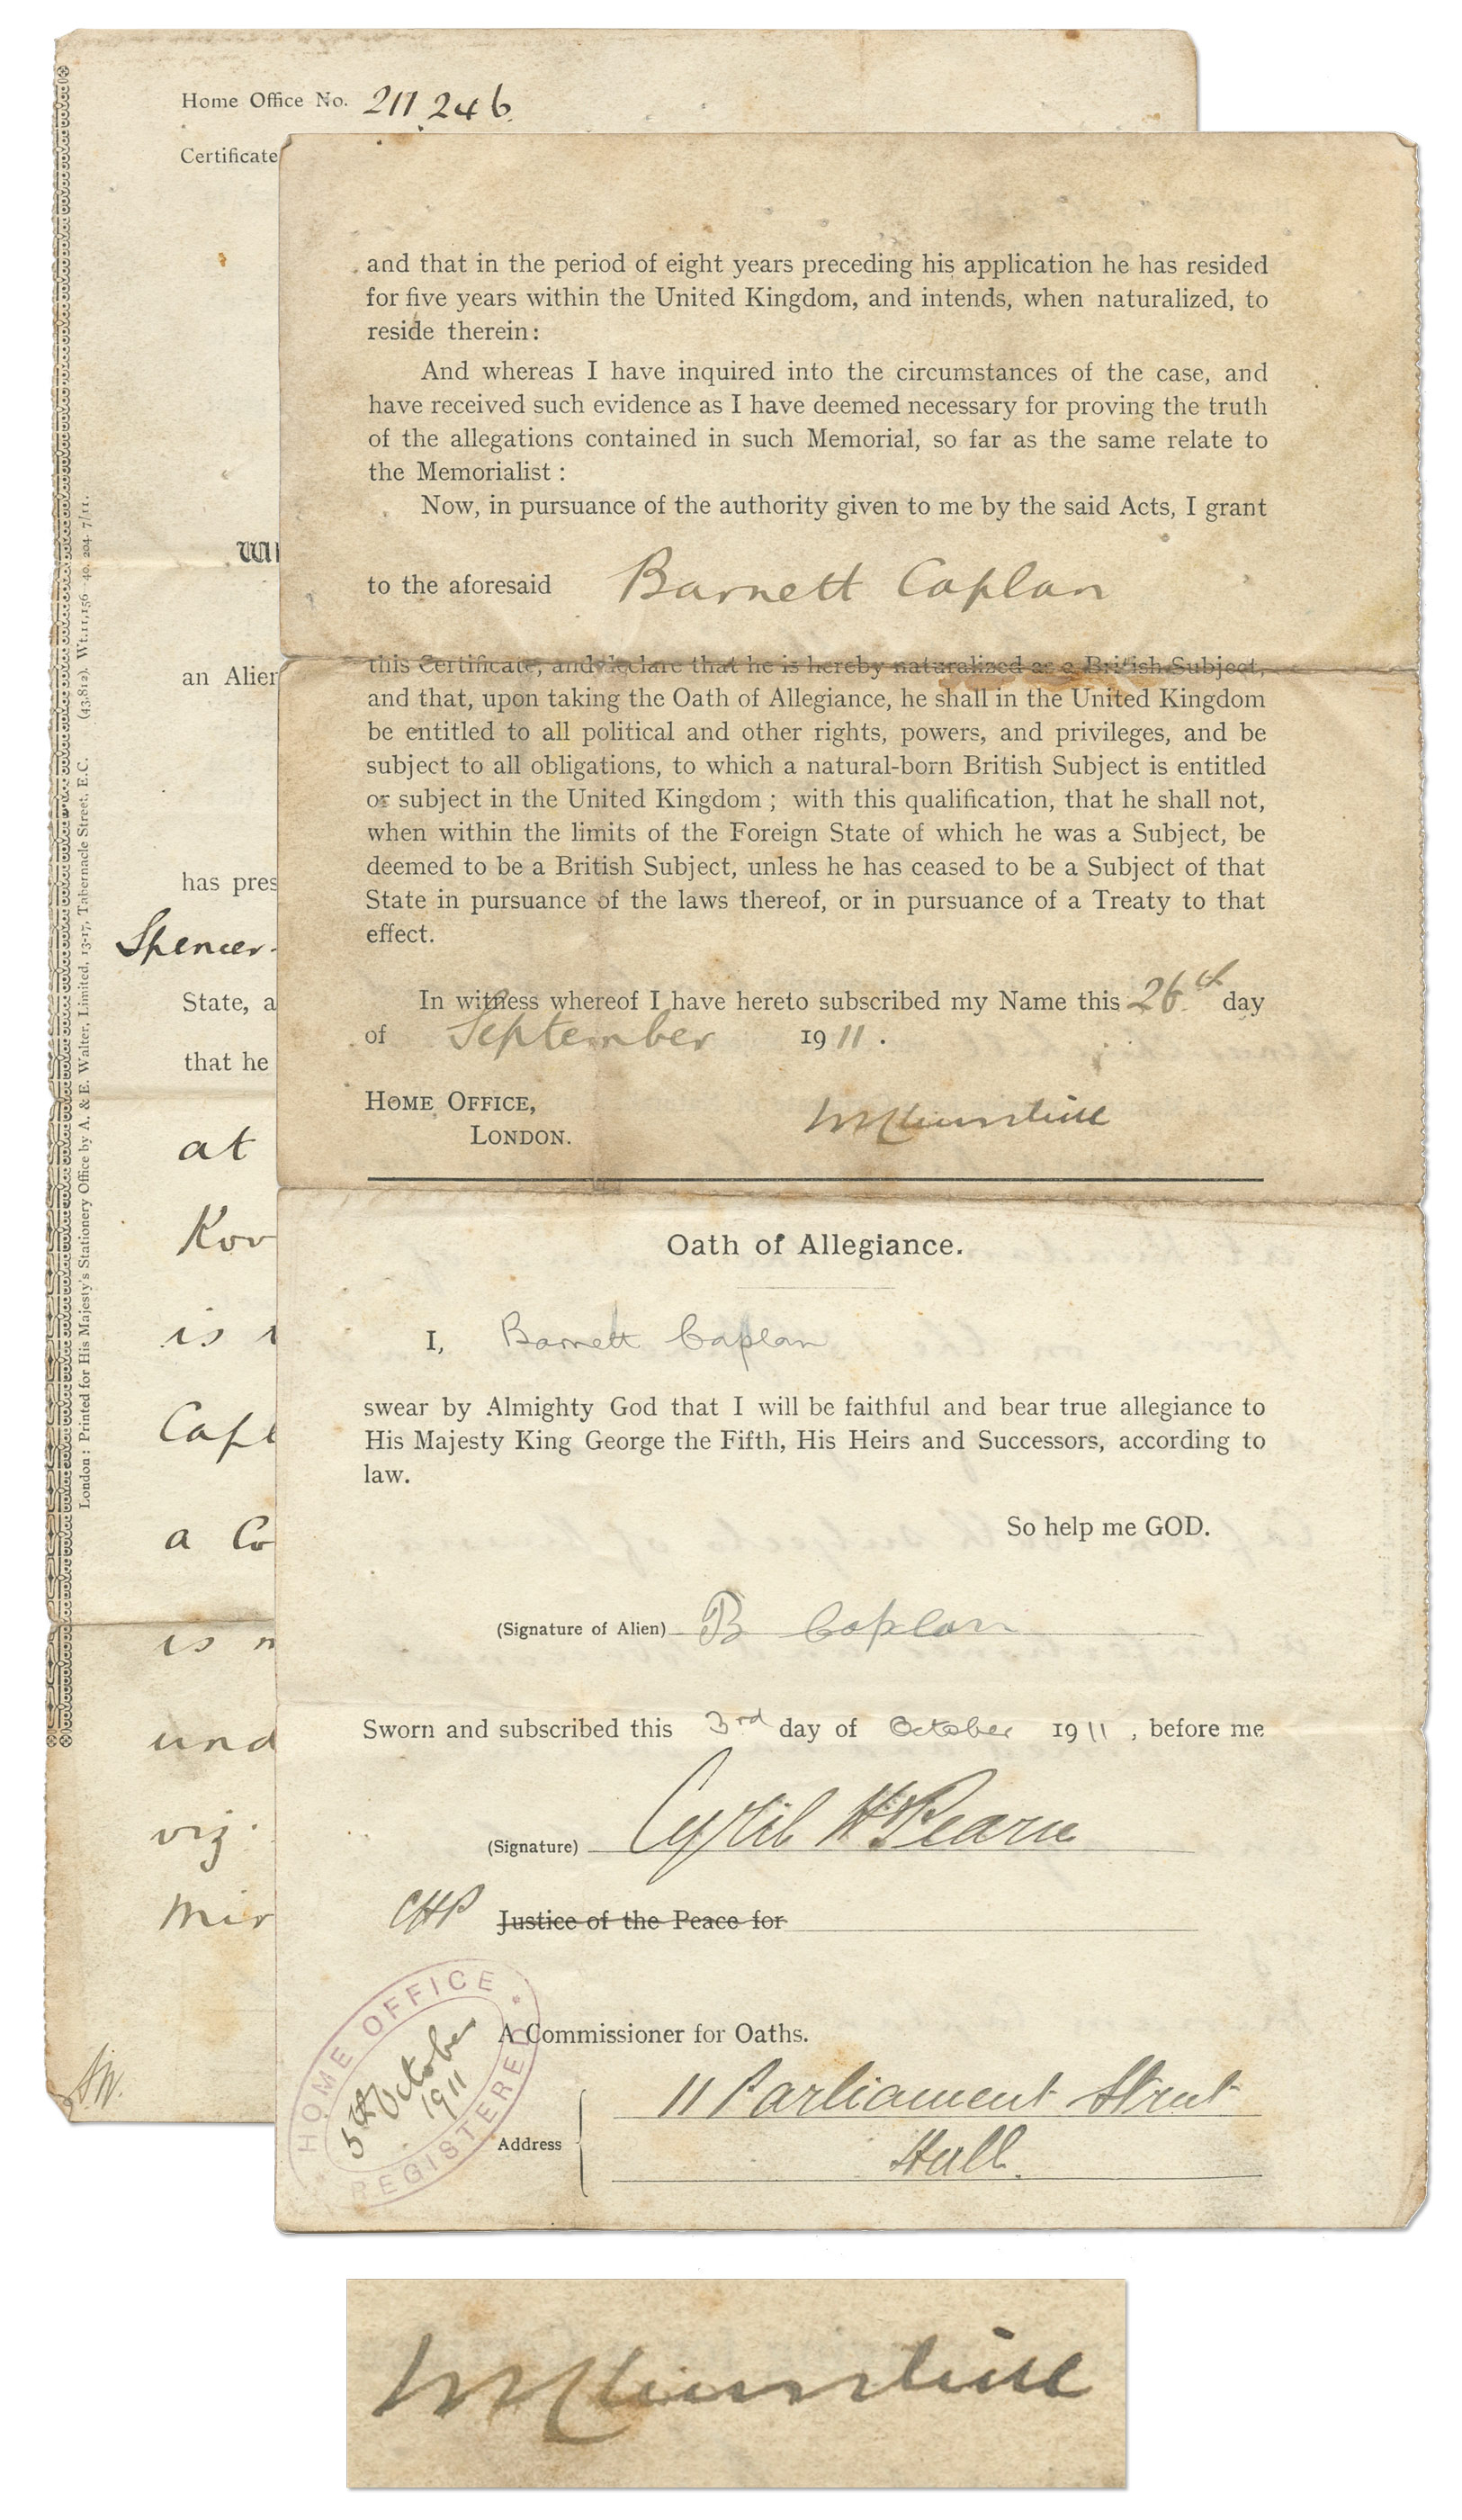 Home Office No. 211,246.
Certificate
Wh
an Alien
has pres
Spencer
State, a
that he
at
Kov
is
Capl
a Co
is n
und
viz.
Mir
London: Printed for His Majesty's Stationery Office by A. & E. Walter, Limited, 13-17, Tabernacle Street, E.C. (43,812). Wt.11,156-40. 204. 7/11.
and that in the period of eight years preceding his application he has resided
for five years within the United Kingdom, and intends, when naturalized, to
reside therein:
And whereas I have inquired into the circumstances of the case, and
have received such evidence as I have deemed necessary for proving the truth
of the allegations contained in such Memorial, so far as the same relate to
the Memorialist :
Now, in pursuance of the authority given to me by the said Acts, I grant
to the aforesaid Barnett Caplan
this Certificate, and declare that he is hereby naturalized as a British Subject,
and that, upon taking the Oath of Allegiance, he shall in the United Kingdom
be entitled to all political and other rights, powers, and privileges, and be
subject to all obligations, to which a natural-born British Subject is entitled
or subject in the United Kingdom ; with this qualification, that he shall not,
when within the limits of the Foreign State of which he was a Subject, be
deemed to be a British Subject, unless he has ceased to be a Subject of that
State in pursuance of the laws thereof, or in pursuance of a Treaty to that
effect.
In witness whereof I have hereto subscribed my Name this 26th day
of September 1911.
HOME OFFICE,
LONDON.
Oath of Allegiance.
I, Barnett Caplan
swear by Almighty God that I will be faithful and bear true allegiance to
His Majesty King George the Fifth, His Heirs and Successors, according to
law.
So help me GOD.
(Signature of Alien) B Caplan
Sworn and subscribed this 3rd day of October 1911, before me
(Signature) Cyril H Pearn
CHP Justice of the Peace for
A Commissioner for Oaths.
HOME OFFICE
5th October
1911
REGISTERED
Address
11 Parliament Street
Hull.